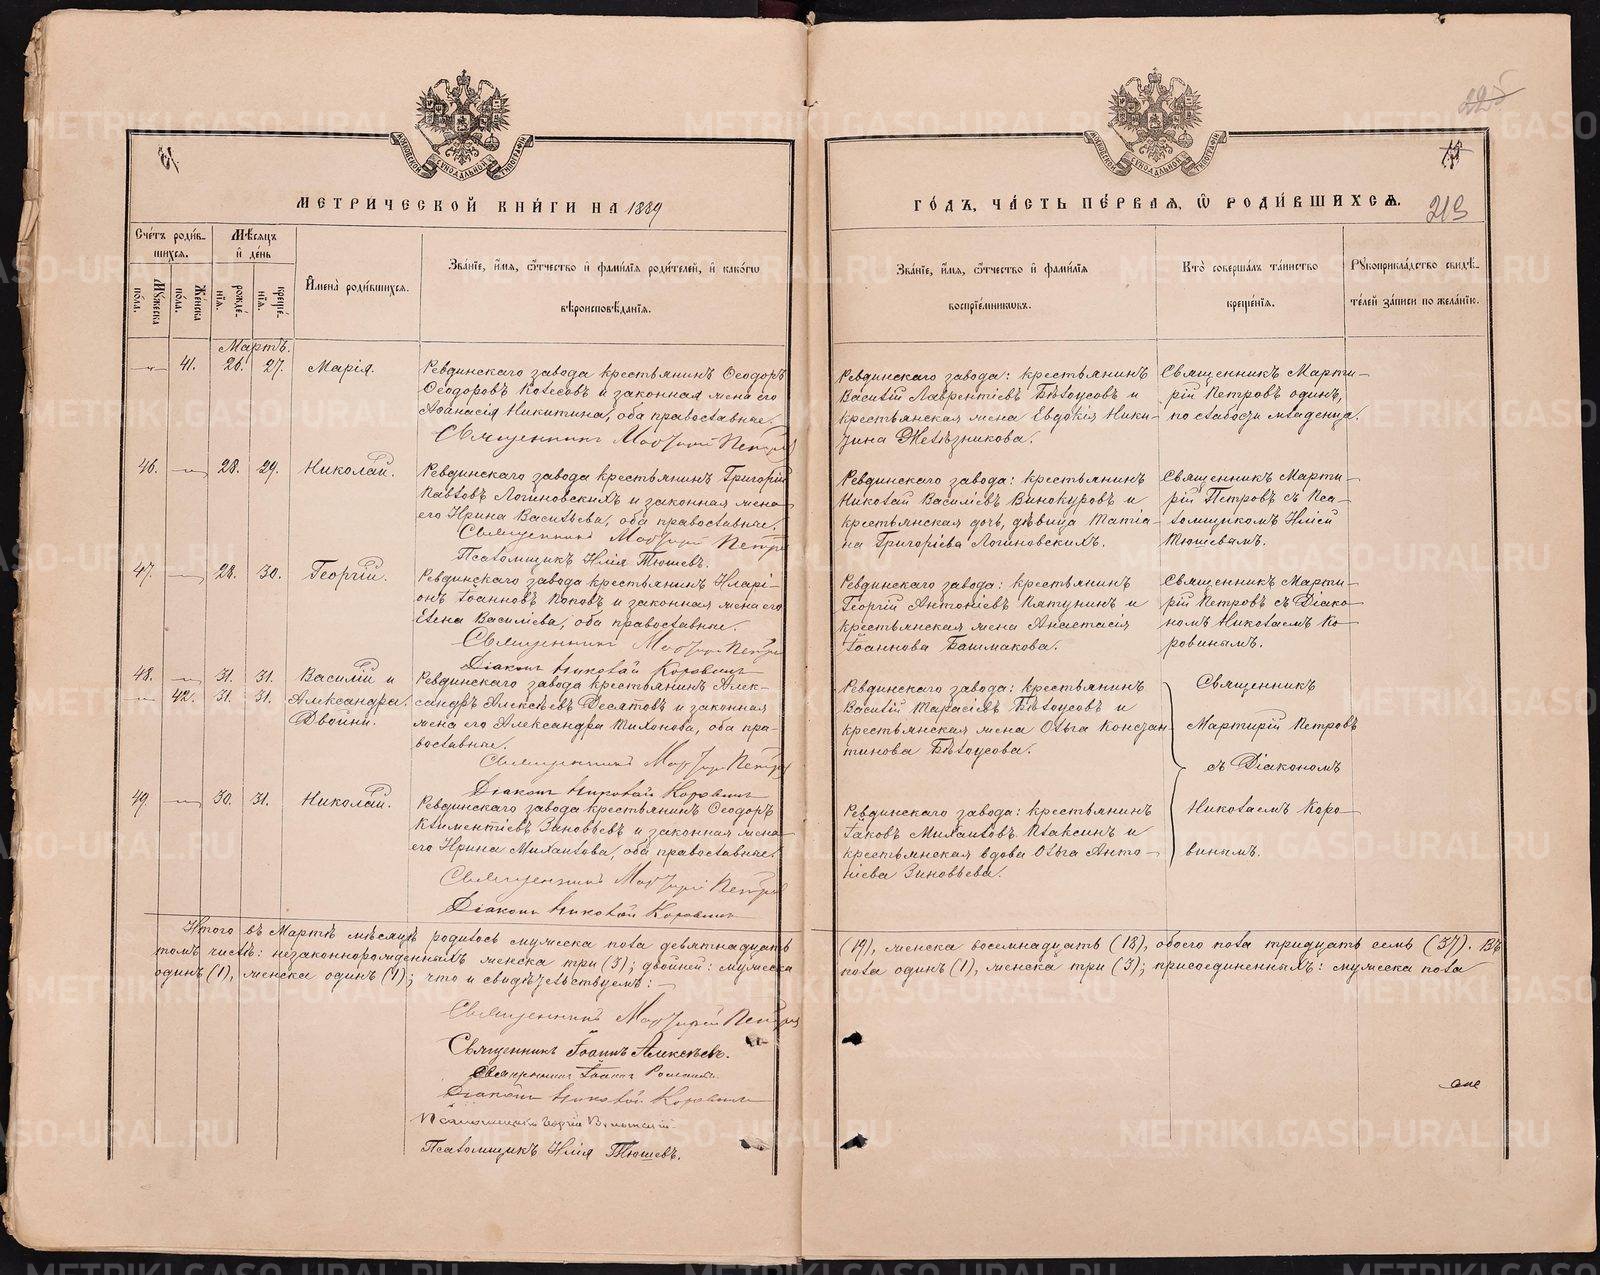 225
213
МЕТРИЧЕСКОЙ КНИГИ НА 1889
ГОДЪ, ЧАСТЬ ПЕРВАЯ, Ѡ РОДИВШИХСЯ.
Счетъ родив-
шихся.
Мѣсяцъ
и день
Мужеска
пола.
Женска
пола.
рожде-
нія.
креще-
нія.
Имена родившихся.
Званіе, имя, отчество и фамилія родителей, и какого
вѣроисповѣданія.
Званіе, имя, отчество и фамилія
воспріемниковъ.
Кто совершалъ таинство
крещенія.
Рукоприкладство свидѣ-
телей записи по желанію.
Мартъ.
41. 26. 27. Марія.
Ревдинскаго завода крестьянинъ Ѳеодоръ
Ѳеодоровъ Колесовъ и законная жена его
Аѳанасія Никитина, оба православные.
Священникъ Мартирій Петровъ
Ревдинскаго завода: крестьянинъ
Василій Лаврентіевъ Бѣлоусовъ и
крестьянская жена Евдокія Ники-
тина Желѣзникова.
Священникъ Марти-
рій Петровъ одинъ,
по слабости младенца.
46. 28. 29. Николай.
Ревдинскаго завода крестьянинъ Григорій
Павловъ Логиновскихъ и законная жена
его Ирина Васильева, оба православные.
Священникъ Мартирій Петровъ
Псаломщикъ Илія Тюшевъ.
Ревдинскаго завода: крестьянинъ
Николай Василіевъ Винокуровъ и
крестьянская дочь, дѣвица Татіа-
на Григоріева Логиновскихъ.
Священникъ Марти-
рій Петровъ съ Пса-
ломщикомъ Иліей
Тюшевымъ.
47. 28. 30. Георгій.
Ревдинскаго завода крестьянинъ Иларі-
онъ Іоанновъ Поповъ и законная жена его
Елена Василіева, оба православные.
Священникъ Мартирій Петровъ
Діаконъ Николай Коровинъ
Ревдинскаго завода: крестьянинъ
Георгій Антоніевъ Пятунинъ и
крестьянская жена Анастасія
Іоаннова Башмакова.
Священникъ Марти-
рій Петровъ съ Діако-
номъ Николаемъ Ко-
ровинымъ.
48. 31. 31. Василій и
42. 31. 31. Александра.
Двойни.
Ревдинскаго завода крестьянинъ Алек-
сандръ Алексѣевъ Десятовъ и законная
жена его Александра Тихонова, оба пра-
вославные.
Священникъ Мартирій Петровъ
Діаконъ Николай Коровинъ
Ревдинскаго завода: крестьянинъ
Василій Тарасіевъ Бѣлоусовъ и
крестьянская жена Ольга Констан-
тинова Бѣлоусова.
Священникъ
Мартирій Петровъ
съ Діакономъ
Николаемъ Коро-
винымъ.
49 30. 31. Николай.
Ревдинскаго завода крестьянинъ Ѳеодоръ
Климентіевъ Зиновьевъ и законная жена
его Ирина Михаилова, оба православные.
Священникъ Мартирій Петровъ
Діаконъ Николай Коровинъ
Ревдинскаго завода: крестьянинъ
Іаковъ Михаиловъ Плаксинъ и
крестьянская вдова Ольга Анто-
ніева Зиновьева.
Итого въ Мартѣ мѣсяцѣ родилось мужеска пола девятнадцать (19), женска восемнадцать (18), обоего пола тридцать семь (37). Въ
томъ числѣ: незаконнорожденныхъ женска три (3); двойней: мужеска пола одинъ (1), женска три (3); присоединенныхъ: мужеска пола
одинъ (1), женска одинъ (1); что и свидѣтельствуемъ:
Священникъ Мартирій Петровъ
Священникъ Іоаннъ Алексѣевъ.
Священникъ Іоаннъ
Діаконъ Николай Коровинъ
Псаломщикъ Георгій
Псаломщикъ Илія Тюшевъ.
METRIKI.GASO-URAL.RU